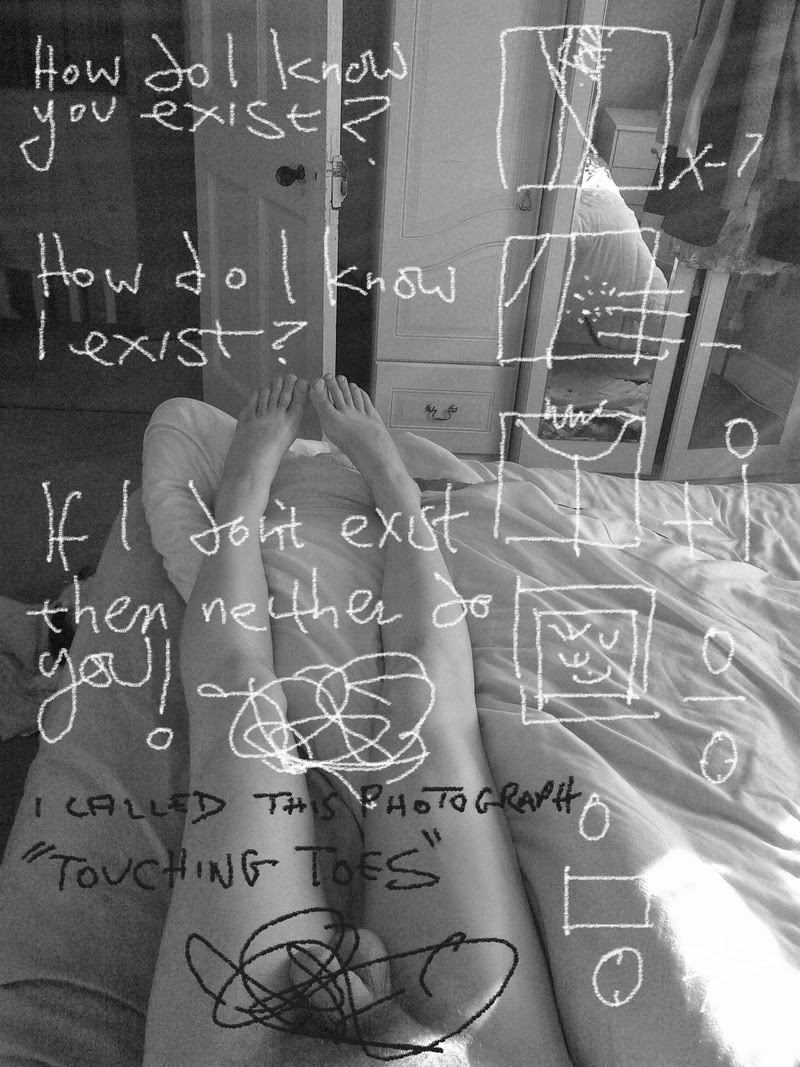 How do I know
you exist?
x-7
How do I know
I exist?
If I don't exist
then neither do
you!
I CALLED THIS PHOTOGRAPH
"TOUCHING TOES"